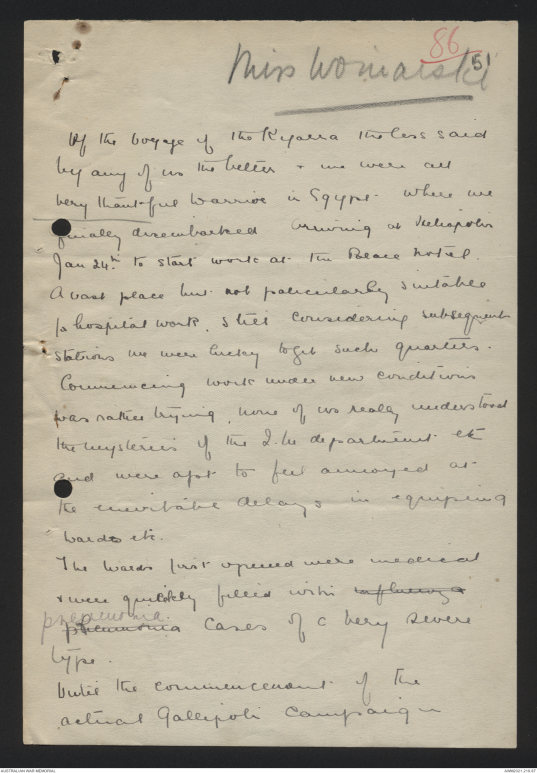 86
51
Miss Womarski
Of the Voyage of the Kyarra the less said
by any of us the better & we were all
very thankful to arrive in Egypt where we
finally disembarked arriving at Heliopolis
Jan 24th to start work at the Palace Hotel.
A vast place but not particularly suitable
for hospital work, still considering subsequent
stations we were lucky to get such quarters.
Commencing work under new conditions
was rather trying, none of us really understood
the mysteries of the Q.M department etc
and were apt to feel annoyed at
the inevitable delays in equiping
wards etc.
The wards first opened were medical
& were quickly filled with influenza
pneumonia
pneumonia cases of a very severe
type.
Until the commencement of the
actual Gallipoli campaign
AUSTRALIAN WAR MEMORIAL